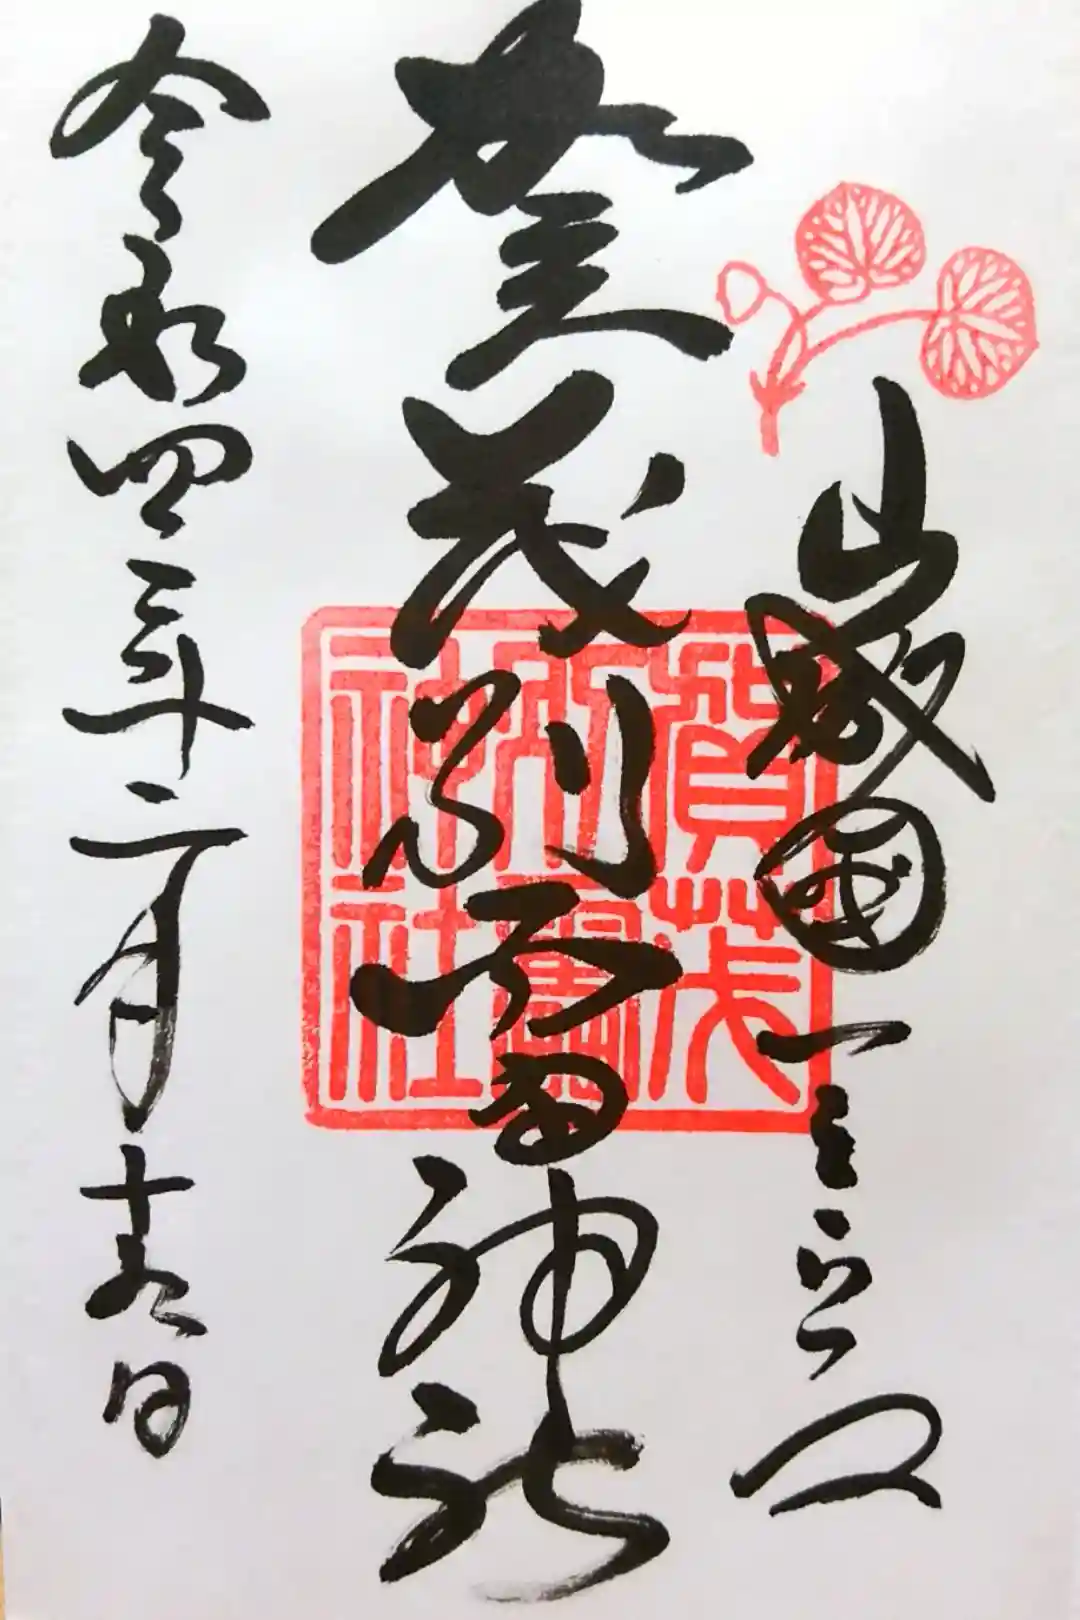 山城國一之宮
賀茂別雷神社
令和四年二月十九日
賀茂
別雷
神社